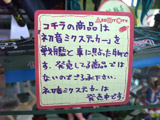 コチラの商品は
初音ミクステッカーを
戦艦に車に貼った物で
す。発売してる商品では
ないのでご了承下さい。
初音ミクステッカーは
発売中です。